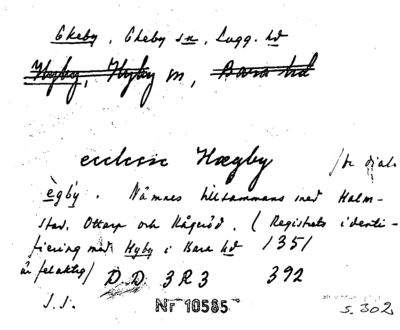 Ekeby, Ekeby sn, Lugg. hd
Hyby, Hyby sn, Bara hd
ecclesie Hægby /br dial.
ègbý. Nämnes tillsammans med Halm-
stad, Ottarp och Kågeröd. (Registrets identi-
fiering med Hyby i Bara hd 1351
är felaktig/ DD 3R3 392
J.S. Nr 10585 s. 302